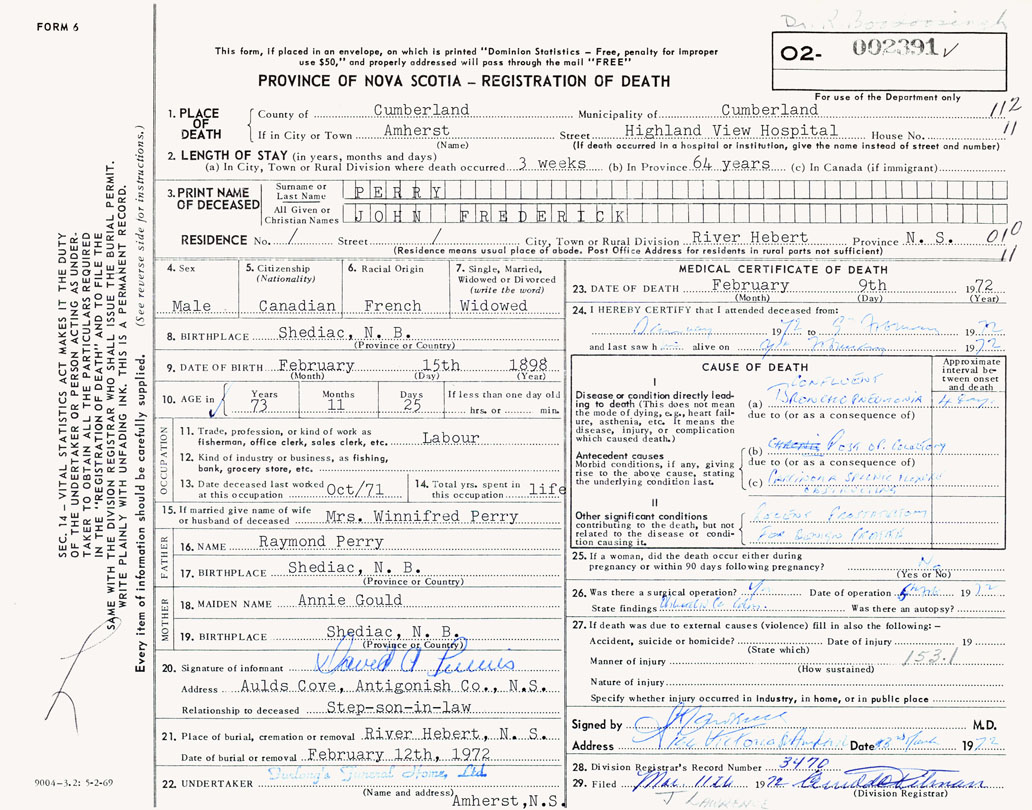 FORM 6
This form, if placed in an envelope, on which is printed "Dominion Statistics – Free, penalty for improper
use $50," and properly addressed will pass through the mail "FREE"
PROVINCE OF NOVA SCOTIA – REGISTRATION OF DEATH
Dr. R.
02- 002391
For use of the Department only
112
11
1. PLACE OF DEATH
County of Cumberland Municipality of Cumberland
If in City or Town Amherst Street Highland View Hospital House No.
(Name) (If death occurred in a hospital or institution, give the name instead of street and number)
2. LENGTH OF STAY (in years, months and days)
(a) In City, Town or Rural Division where death occurred 3 weeks (b) In Province 64 years (c) In Canada (if immigrant)
3. PRINT NAME OF DECEASED
Surname or Last Name PERRY
All Given or Christian Names JOHN FREDERICK
RESIDENCE No. / Street / City, Town or Rural Division River Hebert Province N. S. 010
(Residence means usual place of abode. Post Office Address for residents in rural parts not sufficient) 11
SEC. 14 – VITAL STATISTICS ACT MAKES IT THE DUTY
OF THE UNDERTAKER OR PERSON ACTING AS UNDER-
TAKER TO OBTAIN ALL THE PARTICULARS REQUIRED
IN THE "REGISTRATION OF DEATH" AND TO FILE THE
SAME WITH THE DIVISION REGISTRAR WHO SHALL ISSUE THE BURIAL PERMIT.
WRITE PLAINLY WITH UNFADING INK. THIS IS A PERMANENT RECORD.
Every item of information should be carefully supplied. (See reverse side for instructions.)
4. Sex Male
5. Citizenship (Nationality) Canadian
6. Racial Origin French
7. Single, Married, Widowed or Divorced (write the word) Widowed
8. BIRTHPLACE Shediac, N. B.
(Province or Country)
9. DATE OF BIRTH February 15th 1898
(Month) (Day) (Year)
10. AGE in Years 73 Months 11 Days 25 If less than one day old hrs. or min.
OCCUPATION
11. Trade, profession, or kind of work as
fisherman, office clerk, sales clerk, etc. Labour
12. Kind of industry or business, as fishing,
bank, grocery store, etc.
13. Date deceased last worked at this occupation Oct/71
14. Total yrs. spent in this occupation life
15. If married give name of wife
or husband of deceased Mrs. Winnifred Perry
FATHER
16. NAME Raymond Perry
17. BIRTHPLACE Shediac, N. B.
(Province or Country)
MOTHER
18. MAIDEN NAME Annie Gould
19. BIRTHPLACE Shediac, N. B.
(Province or Country)
20. Signature of informant David A
Address Aulds Cove, Antigonish Co., N.S.
Relationship to deceased Step-son-in-law
21. Place of burial, cremation or removal River Hebert, N. S.
Date of burial or removal February 12th, 1972
22. UNDERTAKER Furlong's Funeral Home, Ltd
(Name and address) Amherst, N.S.
9004-3.2: 5-2-69
MEDICAL CERTIFICATE OF DEATH
23. DATE OF DEATH February 9th 1972
(Month) (Day) (Year)
24. I HEREBY CERTIFY that I attended deceased from:
19 to 1972
and last saw h alive on 1972
CAUSE OF DEATH
Approximate interval between onset and death
I
Disease or condition directly lead-
ing to death (This does not mean
the mode of dying, e.g., heart fail-
ure, asthenia, etc. it means the
disease, injury, or complication
which caused death.)
(a) CONFLUENT BRONCHOPNEUMONIA 4 days
due to (or as a consequence of)
Antecedent causes
Morbid conditions, if any, giving
rise to the above cause, stating
the underlying condition last.
(b)
due to (or as a consequence of)
(c)
II
Other significant conditions
contributing to the death, but not
related to the disease or condi-
tion causing it.
25. If a woman, did the death occur either during
pregnancy or within 90 days following pregnancy? No
(Yes or No)
26. Was there a surgical operation? Yes Date of operation 1972
State findings Was there an autopsy?
27. If death was due to external causes (violence) fill in also the following:–
Accident, suicide or homicide? Date of injury 19
(State which)
Manner of injury 153.1
(How sustained)
Nature of injury
Specify whether injury occurred in industry, in home, or in public place
Signed by M.D.
Address Date 1972
28. Division Registrar's Record Number 3470
29. Filed 11th 1972
(Division Registrar)
J LAWRENCE